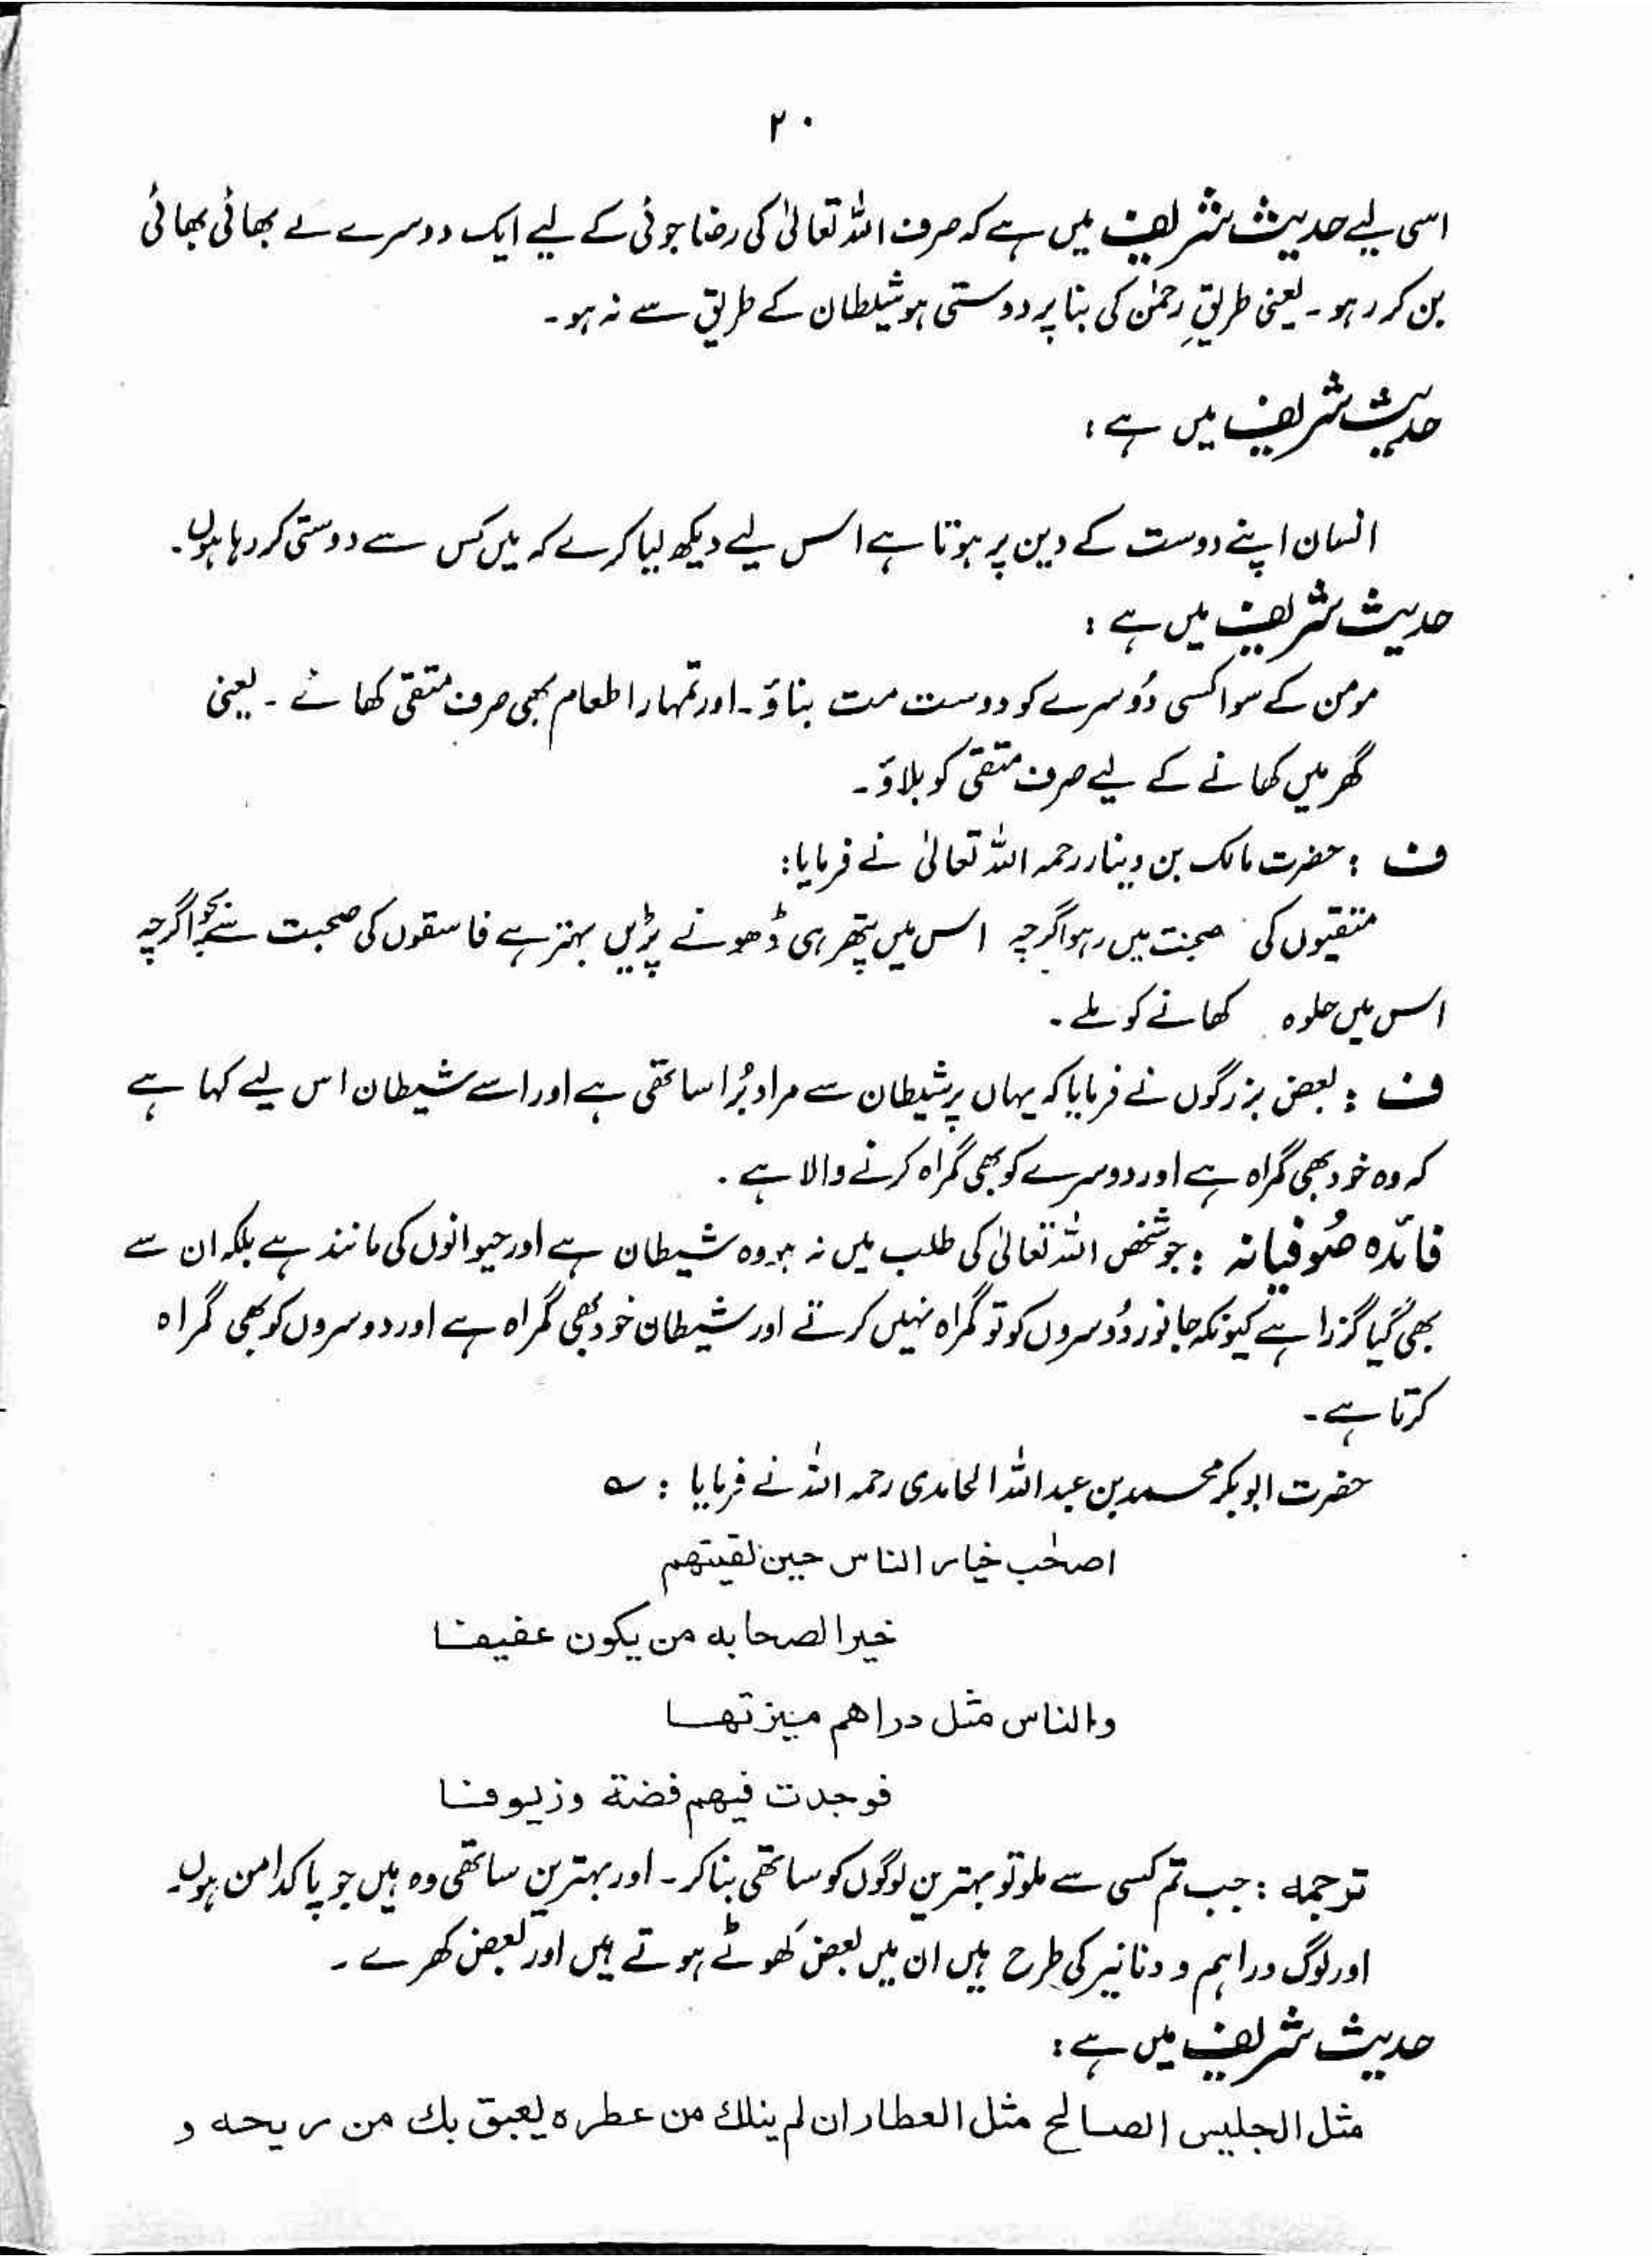 ۲۰
اسی لیے حدیث شریف میں ہے کہ صرف اللہ تعالیٰ کی رضا جوئی کے لیے ایک دوسرے کے بھائی بھائی
بن کر رہو ۔ یعنی طریقِ رحمٰن کی بنا پر دوستی ہو شیطان کے طریق سے نہ ہو ۔
حدیث شریف میں ہے :
انسان اپنے دوست کے دین پر ہوتا ہے اس لیے دیکھ لیا کرے کہ میں کس سے دوستی کر رہا ہوں ۔
حدیث شریف میں ہے :
مومن کے سوا کسی دُوسرے کو دوست مت بناؤ ۔ اور تمہارا طعام بھی صرف متقی کھائے ۔ یعنی
گھر میں کھانے کے لیے صرف متقی کو بلاؤ ۔
ف : حضرت مالک بن دینار رحمہ اللہ تعالیٰ نے فرمایا :
متقیوں کی صحبت میں رہو اگرچہ اس میں پتھر ہی ڈھونے پڑیں بہتر ہے فاسقوں کی صحبت سے بچو اگرچہ
اس میں حلوہ کھانے کو ملے ۔
ف : بعض بزرگوں نے فرمایا کہ یہاں پر شیطان سے مراد بُرا ساتھی ہے اور اسے شیطان اس لیے کہا ہے
کہ وہ خود بھی گمراہ ہے اور دوسرے کو بھی گمراہ کرنے والا ہے ۔
فائدہ صُوفیانہ : جو شخص اللہ تعالیٰ کی طلب میں نہ ہو وہ شیطان ہے اور حیوانوں کی مانند ہے بلکہ ان سے
بھی گیا گزرا ہے کیونکہ جانور دُوسروں کو تو گمراہ نہیں کرتے اور شیطان خود بھی گمراہ ہے اور دوسروں کو بھی گمراہ
کرتا ہے ۔
حضرت ابوبکر محمد بن عبد اللہ الحامدی رحمہ اللہ نے فرمایا : ؎
اصحٰب خیار الناس حین لقیتھم
خیر الصحابہ من یکون عفیفا
والناس مثل دراھم میزتھا
فوجدت فیھم فضۃ وزیوفا
ترجمہ : جب تم کسی سے ملو تو بہترین لوگوں کو ساتھی بنا کر ۔ اور بہترین ساتھی وہ ہیں جو پاکدامن ہوں ۔
اور لوگ دراہم و دنانیر کی طرح ہیں ان میں بعض کھوٹے ہوتے ہیں اور بعض کھرے ۔
حدیث شریف میں ہے :
مثل الجلیس الصالح مثل العطار ان لم ینلك من عطرہ یعبق بك من ریحہ و